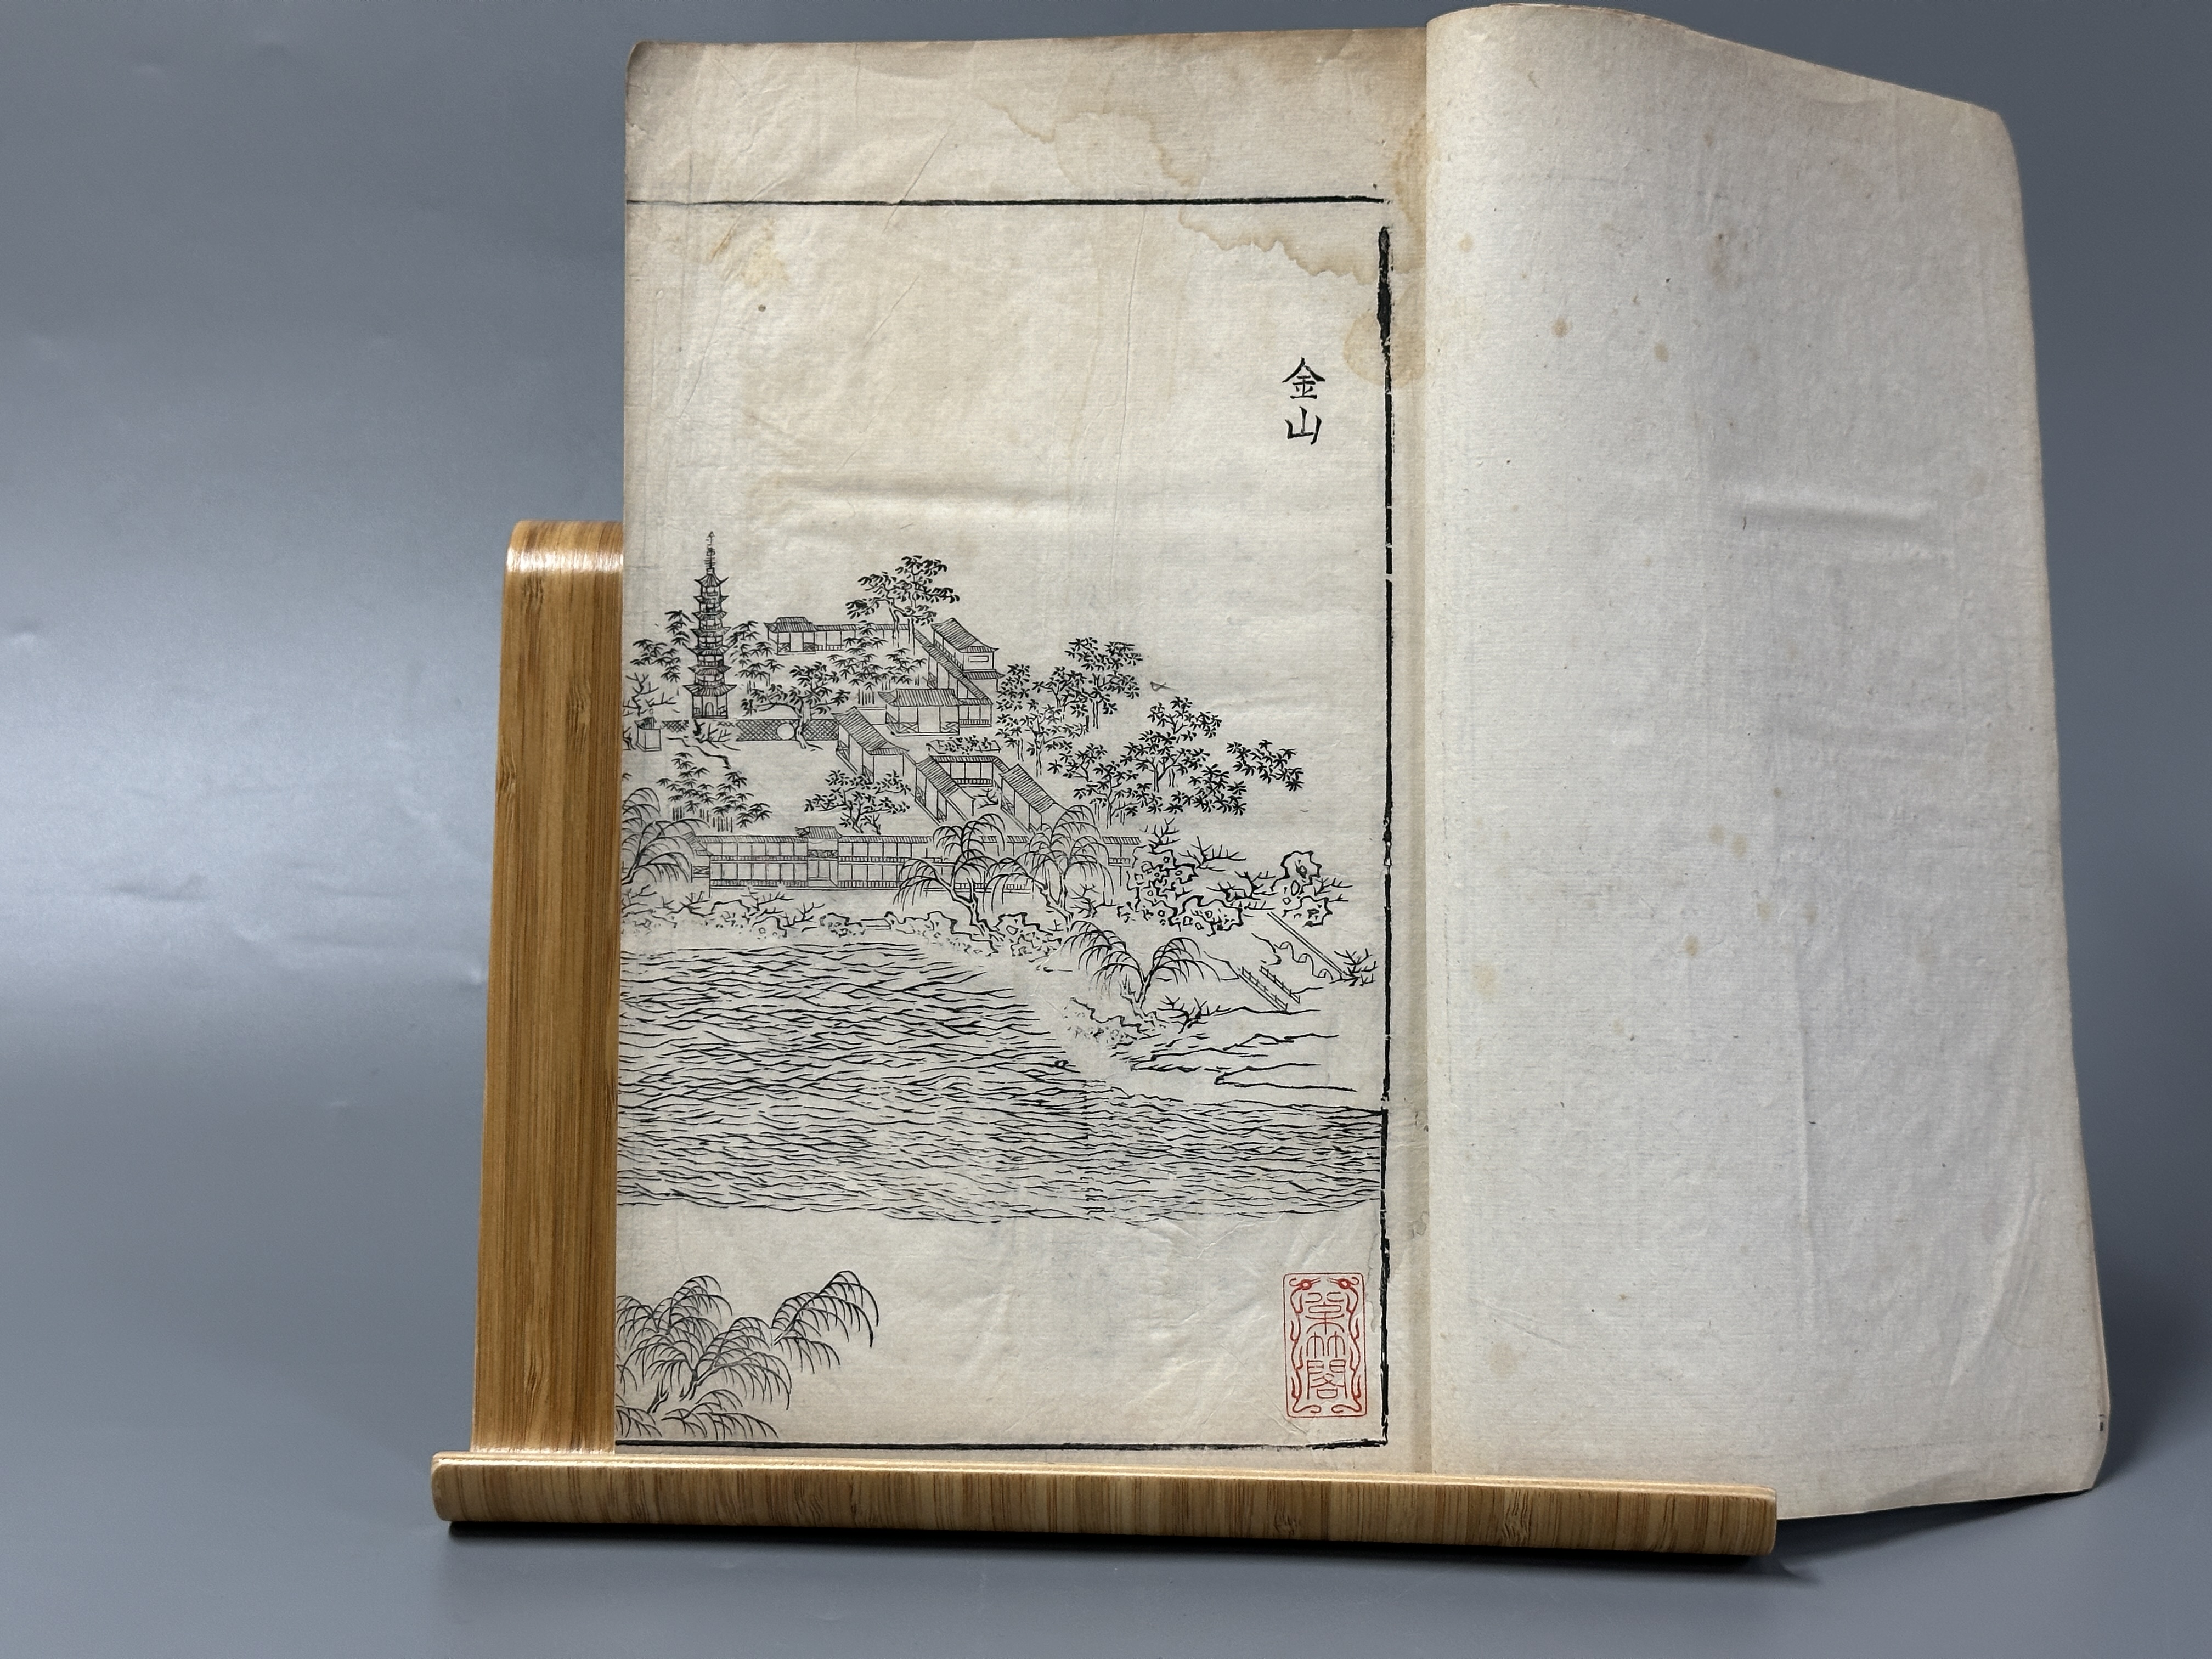 金山
竹閣